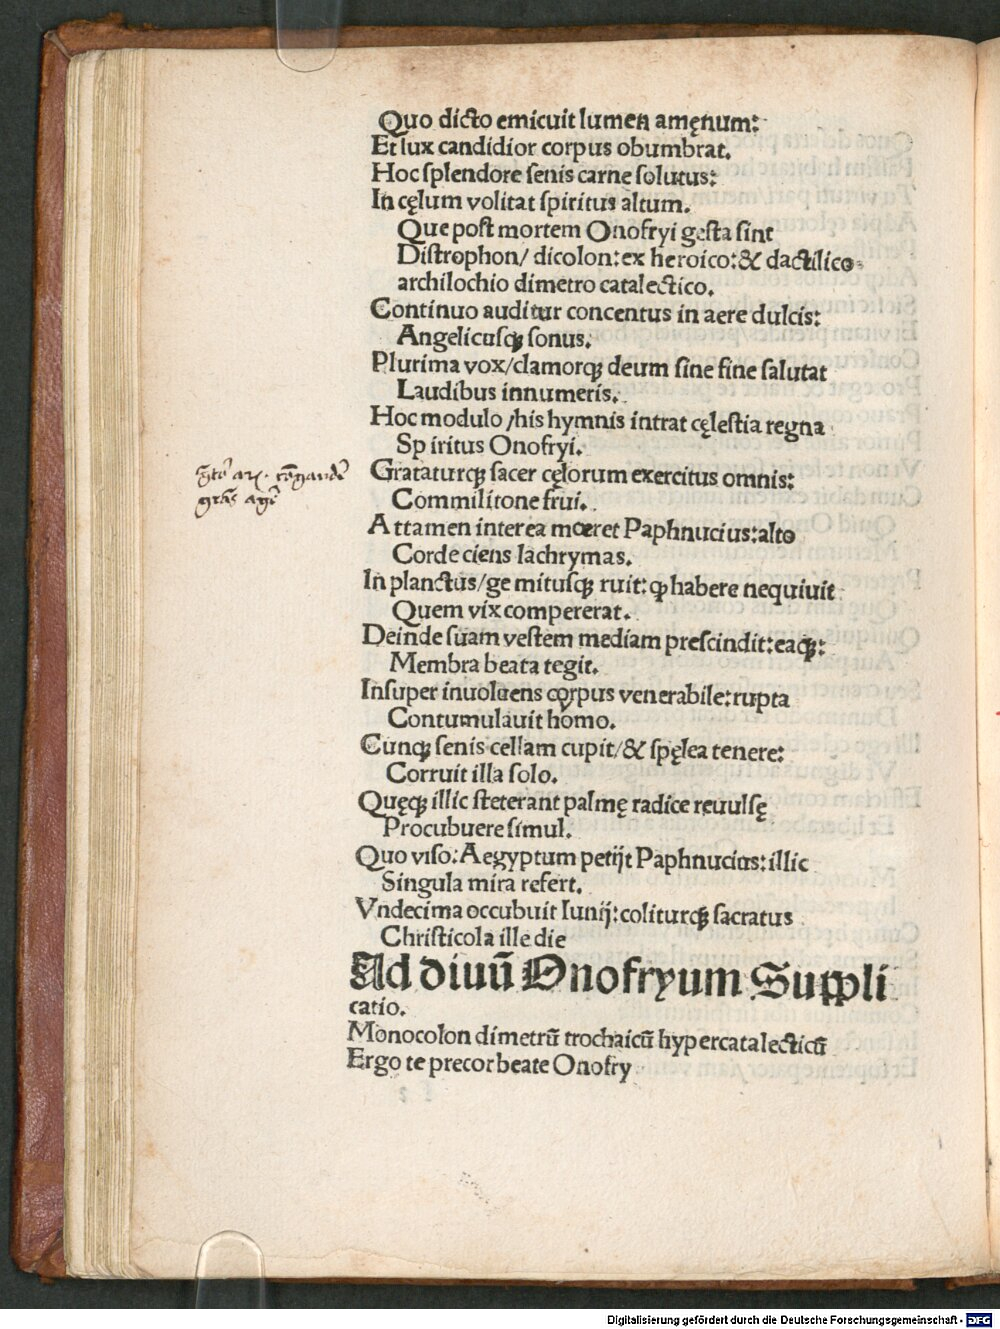 Quo dicto emicuit lumen amęnum:
Et lux candidior corpus obumbrat.
Hoc ſplendore ſenis carne ſolutus:
In cęlum volitat ſpiritus altum.
Que poſt mortem Onofryi geſta ſint
Diſtrophon/ dicolon: ex heroico: & dactilico
archilochio dimetro catalectico.
Continuo auditur concentus in aere dulcis:
Angelicuſqꝫ ſonus.
Plurima vox/clamorqꝫ deum ſine fine ſalutat
Laudibus innumeris.
Hoc modulo /his hymnis intrat cęleſtia regna
Sp iritus Onofryi.
Grataturqꝫ ſacer cęlorum exercitus omnis:
Commilitone frui.
Attamen interea mœret Paphnucius: alto
Corde ciens lachrymas.
In planctus/ge mituſqꝫ ruit: ꝙ habere nequiuit
Quem vix compererat.
Deinde ſuam veſtem mediam preſcindit: eaqꝫ:
Membra beata tegit.
Inſuper inuoluens corpus venerabile: rupta
Contumulauit homo.
Cunqꝫ ſenis cellam cupit/& ſpęlea tenere:
Corruit illa ſolo.
Quęqꝫ illic ſteterant palmę radice reuulſę
Procubuere ſimul.
Quo viſo: Aegyptum petijt Paphnucius: illic
Singula mira refert.
Vndecima occubuit Iunij: coliturqꝫ ſacratus
Chriſticola ille die
Ad diuū Onofryum Suppli
catio.
Monocolon dimetrū trochaicū hypercatalecticū
Ergo te precor beate Onofry
Digitalisierung gefördert durch die Deutsche Forschungsgemeinschaft - DFG